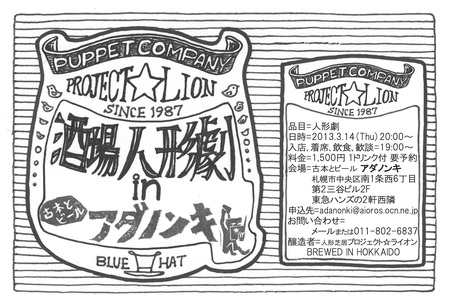 PUPPET COMPANY
PROJECT☆LION
SINCE 1987
酒場人形劇
in
古本と
ビール
アダノンキ
BLUE HAT
PUPPET COMPANY
PROJECT☆LION
SINCE 1987
品目=人形劇
日時=2013.3.14(Thu) 20:00〜
入店、着席、飲食、歓談=19:00〜
料金=1,500円 1ドリンク付 要予約
会場=古本とビール アダノンキ
札幌市中央区南1条西6丁目
第2三谷ビル2F
東急ハンズの2軒西隣
申込先=adanonki@aioros.ocn.ne.jp
お問い合わせ=
メールまたは011-802-6837
醸造者=人形芝居プロジェクト☆ライオン
BREWED IN HOKKAIDO